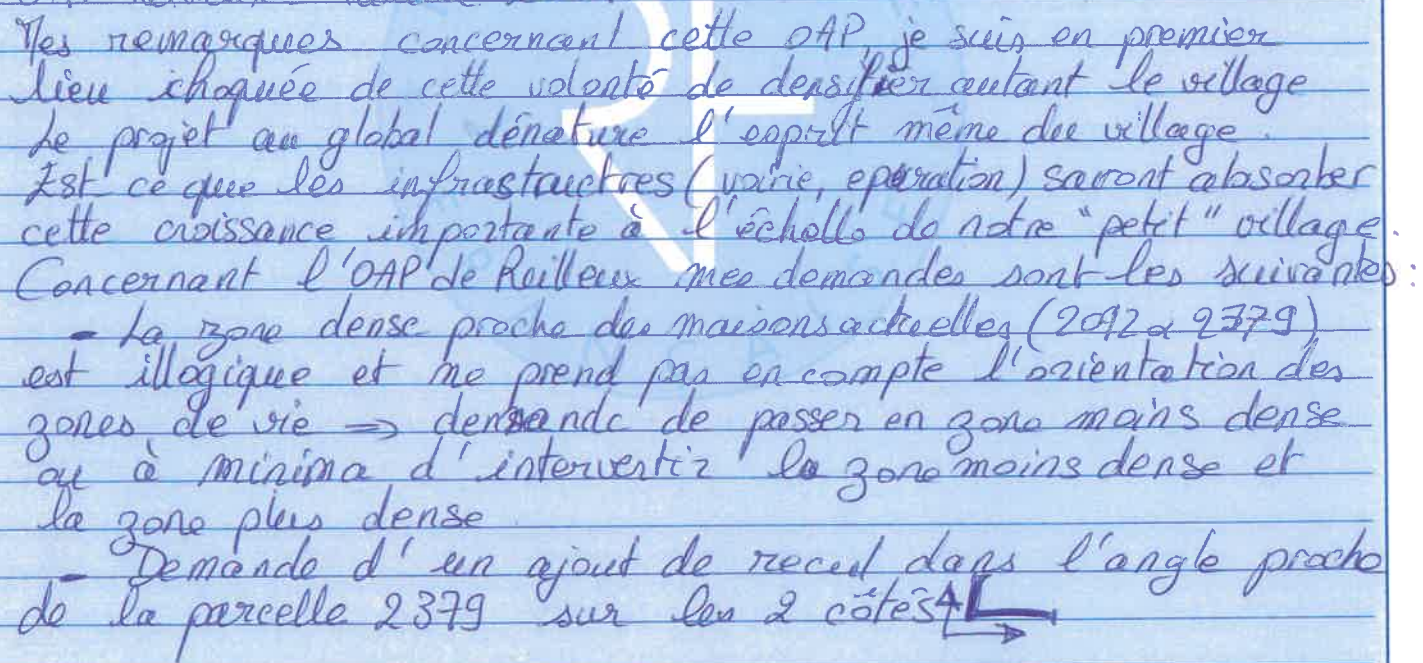 Mes remarques concernant cette OAP, je suis en premier
lieu choquée de cette volonté de densifier autant le village
Le projet au global dénature l'esprit même du village.
Est ce que les infrastructres (voirie, eparation) sauront absorber
cette croissance importante à l'échelle de notre "petit" village.
Concernant l'OAP de Railleux mes demandes sont les suivantes :
- La zone dense proche des maisons actuelles (2092 a 2379)
est illogique et ne prend pas en compte l'orientation des
zones de vie => demande de passer en zone moins dense
ou à minima d'intervertir la zone moins dense et
la zone plus dense
- Demande d'un ajout de recul dans l'angle proche
de la parcelle 2379 sur les 2 côtés
RF